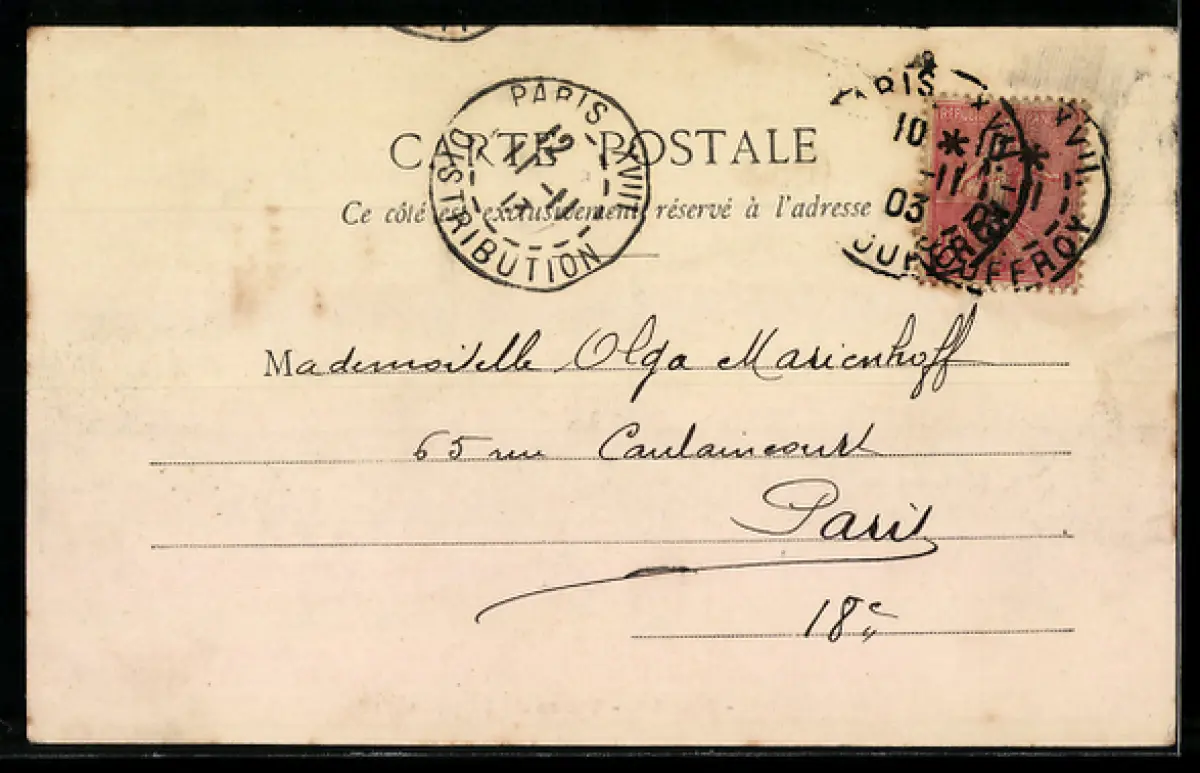 PARIS XVIII
DISTRIBUTION
CARTE POSTALE
Ce côté est exclusivement réservé à l'adresse
PARIS XVII
10 * 11
03
JOUFFROY
Mademoiselle Olga Marienhoff
65 rue Caulaincourt
Paris
18e